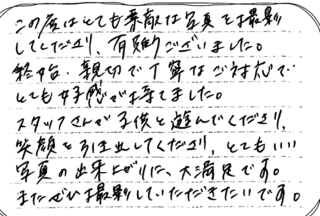 この度はとても素敵な写真を撮影
してくださり、有難うございました。
終始、親切で丁寧なご対応で
とても好感が持てました。
スタッフさんが子供と遊んでくださり、
笑顔を引き出してくださり、とてもいい
写真の出来上がりに、大満足です。
またぜひ撮影していただきたいです。